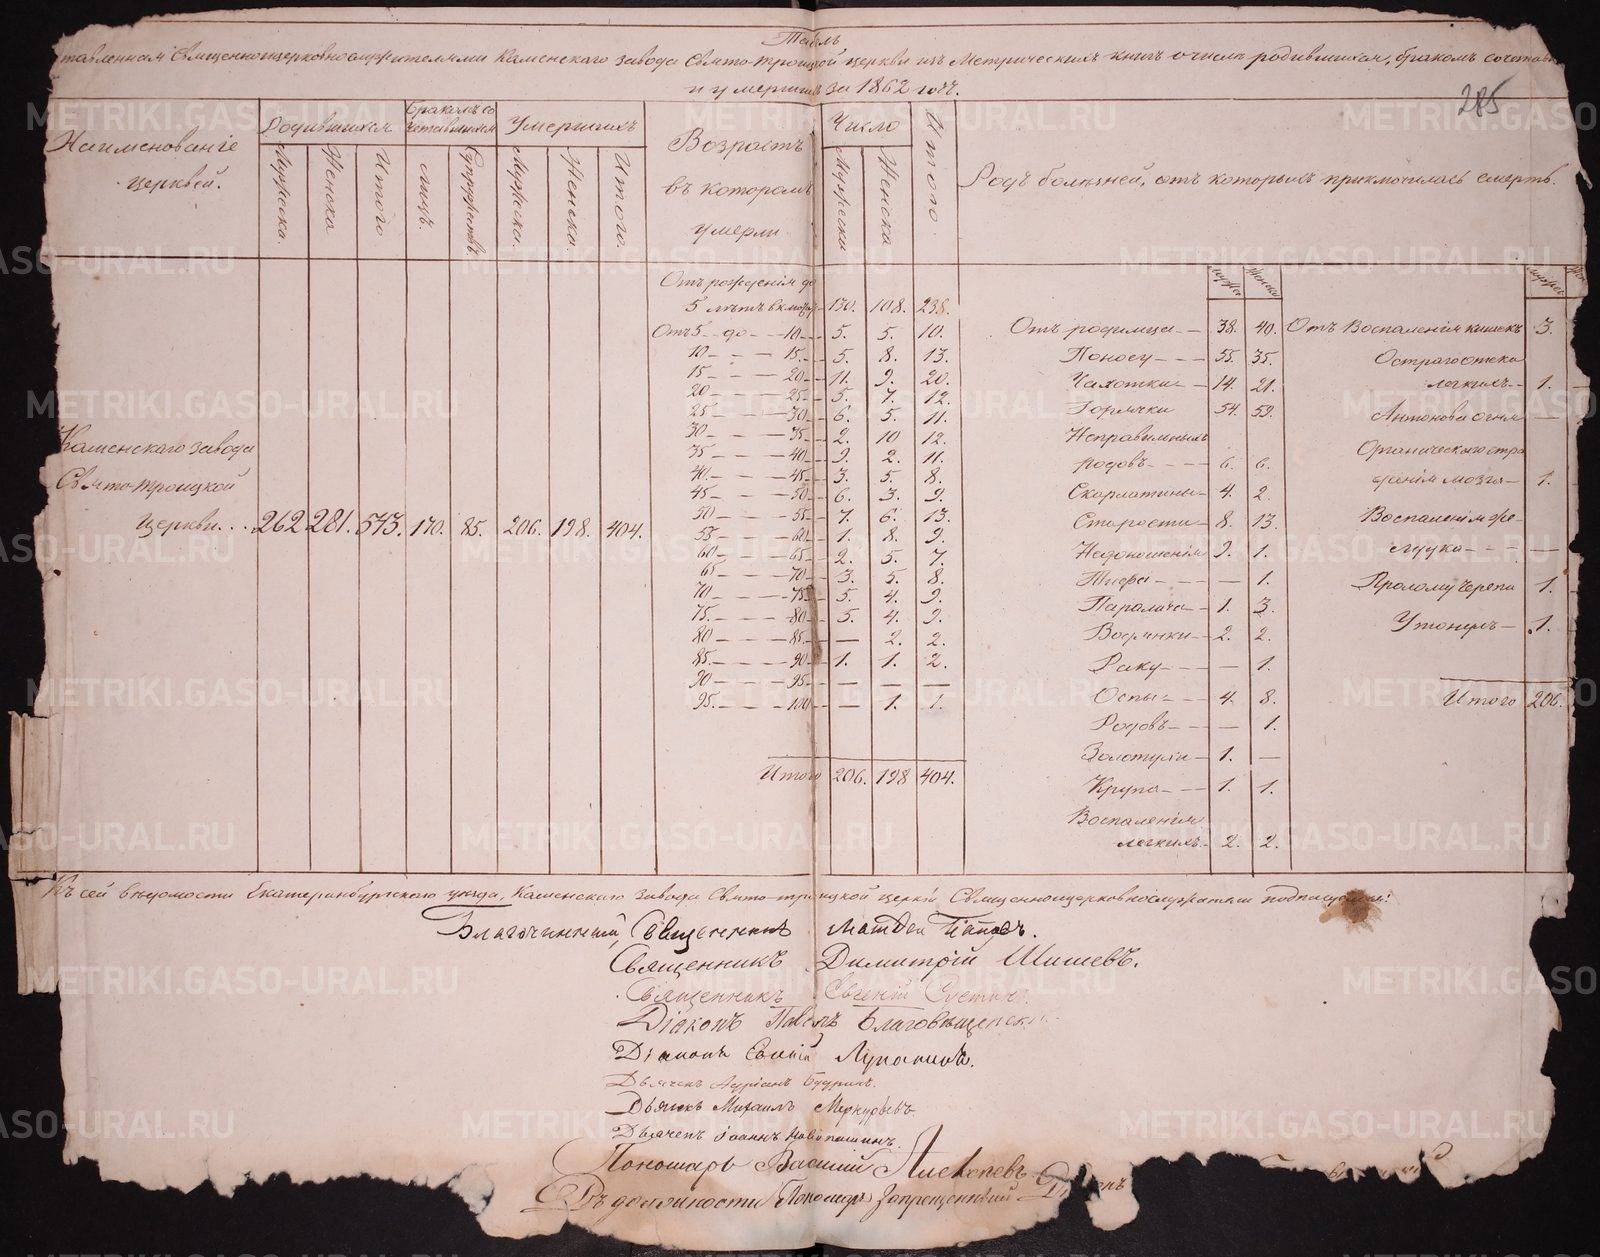 Табель
ставленная Священноцерковнослужителями Каменскаго завода Свято-Троицкой церкви изъ Метрическихъ книгъ о числѣ родившихся, бракомъ сочетав
и умершихъ за 1862 годъ.
285
Наименованіе церквей.
Родившихся
Мужеска.
Женска
Итого
Бракомъ сочетавшихся
лицъ.
Супружествъ.
Умершихъ
Мужеска.
Женска.
Итого.
Возрастъ въ которомъ умерли
Число
Мужеска
Женска
Итого.
Родъ болѣзней, отъ которыхъ приключилась смерть.
Каменскаго завода
Свято-Троицкой
церкви... 262 281. 543. 170. 85. 206. 198. 404.
Отъ рожденія до
5 лѣтъ включ. 130. 108. 238.
Отъ 5 до 10 5. 5. 10.
10 15. 5. 8. 13.
15 20 11. 9. 20.
20 25 5. 7. 12.
25 30 6. 5. 11.
30 35 2. 10 12.
35 40 9. 2. 11.
40 45 3. 5. 8.
45 50 6. 3. 9.
50 55 7. 6. 13.
55 60 1. 8. 9.
60 65 2. 5. 7.
65 70 3. 5. 8.
70 75 5. 4. 9.
75. 80 5. 4. 9.
80 85 — 2. 2.
85. 90 1. 1. 2.
90 95 — — —
95. 100 — 1. 1.
Итого 206. 198 404.
Мужеска Женска
Отъ родимца 38. 40.
Поносу 55. 35.
Чахотки 14. 21.
Горячки 54. 59.
Неправильныхъ
родовъ 6. 6.
Скарлатины 4. 2.
Старости 8. 13.
Недоношенія 9. 1.
Тифа — 1.
Паралича 1. 3.
Водянки 2. 2.
Раку — 1.
Оспы 4. 8.
Родовъ — 1.
Золотухи 1. —
Крупа 1. 1.
Воспаленія
легкихъ 2. 2.
Отъ Воспаленія кишекъ 3.
Остраго отека
легкихъ 1.
Антонова огня —
Органическаго стра
данія мозга 1.
Воспаленія же-
лудка —
Пролому черепа 1.
Утонулъ 1.
Итого 206.
Къ сей вѣдомости Екатеринбургскаго уѣзда, Каменскаго завода Свято-троицкой церкви Священноцерковнослужители подписуемся:
Благочинный, Священникъ Матвей Поповъ.
Священникъ Димитрій Шишевъ.
Священникъ Евгеній
Діаконъ Павелъ Благовѣщенскій
Діаконъ Луканинъ.
Дьячекъ Адріанъ
Дьячекъ Михаилъ Меркурьевъ
Дьячекъ Іоаннъ Новопашинъ.
Пономарь Василій Алексеевъ
Въ должности Пономаря Запрещенный
METRIKI.GASO-URAL.RU